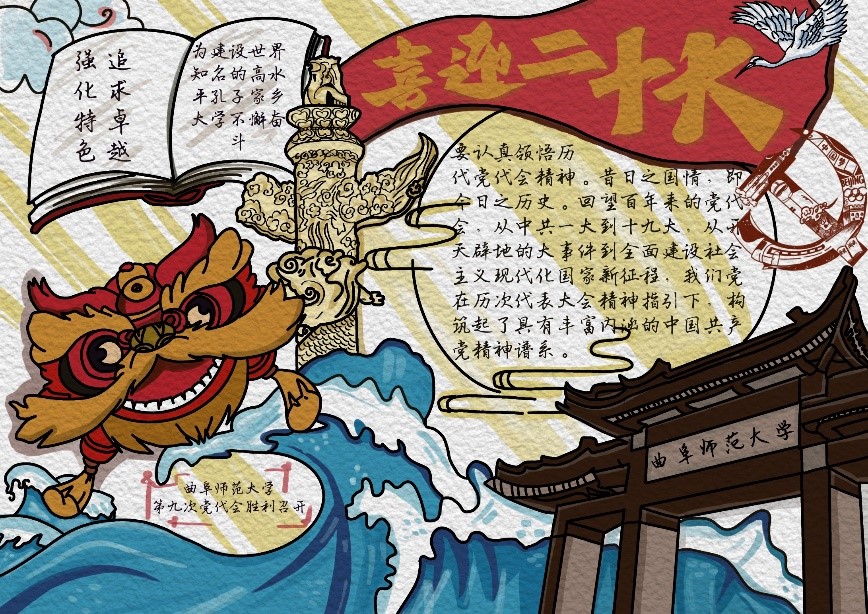 喜迎二十大
追求卓越
强化特色
为建设世界
知名的高水
平孔子家乡
大学不懈奋
斗
要认真领悟历
代党代会精神。昔日之国情，即
今日之历史。回望百年来的党代
会，从中共一大到十九大，从开
天辟地的大事件到全面建设社会
主义现代化国家新征程，我们党
在历次代表大会精神指引下，构
筑起了具有丰富内涵的中国共产
党精神谱系。
曲阜师范大学
曲阜师范大学
第九次党代会胜利召开